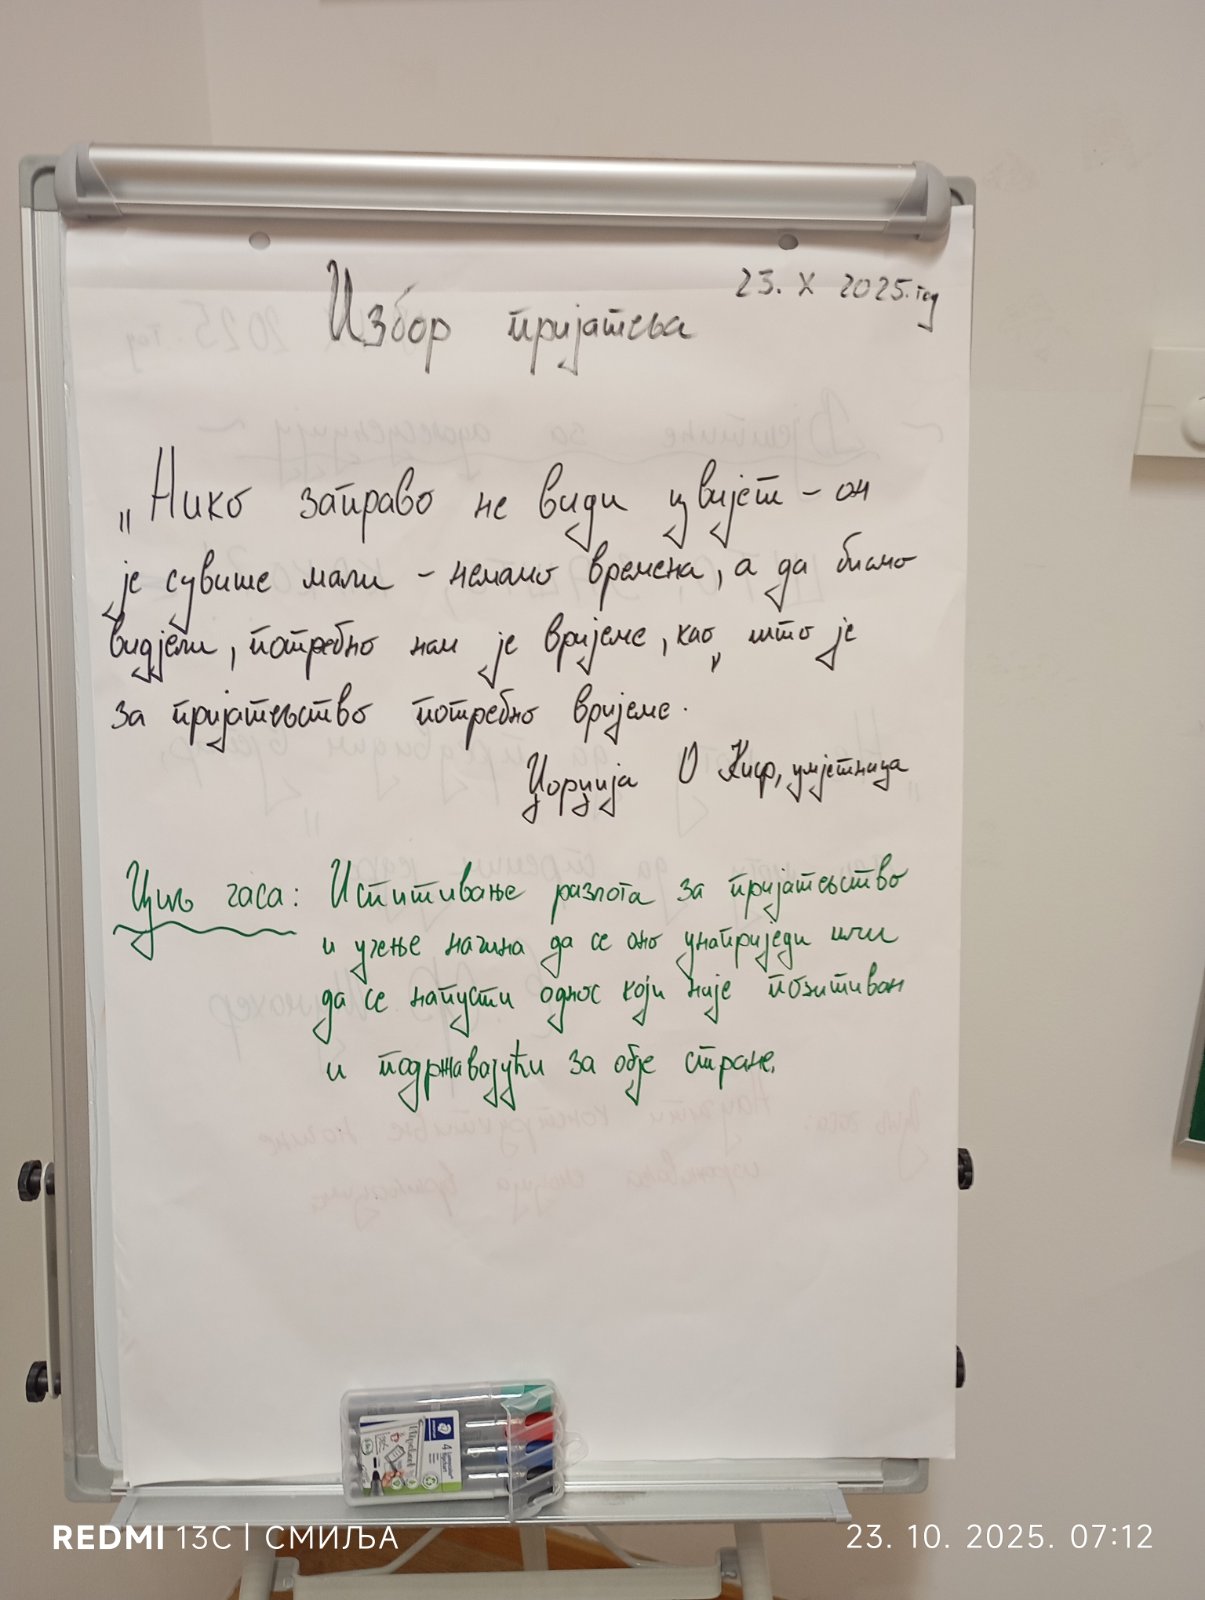 23. X 2025. год
Избор пријатеља
„Нико заправо не види цвијет – он
је сувише мали – немамо времена, а да бисмо
видјели, потребно нам је вријеме, као што је
за пријатељство потребно вријеме.
Џорџија О Киф, умјетница
Циљ часа: Испитивање разлога за пријатељство
и учење начина да се оно унаприједи или
да се напусти однос који није позитиван
и подржавајући за обје стране.
STAEDTLER
REDMI 13C | СМИЉА
23. 10. 2025. 07:12